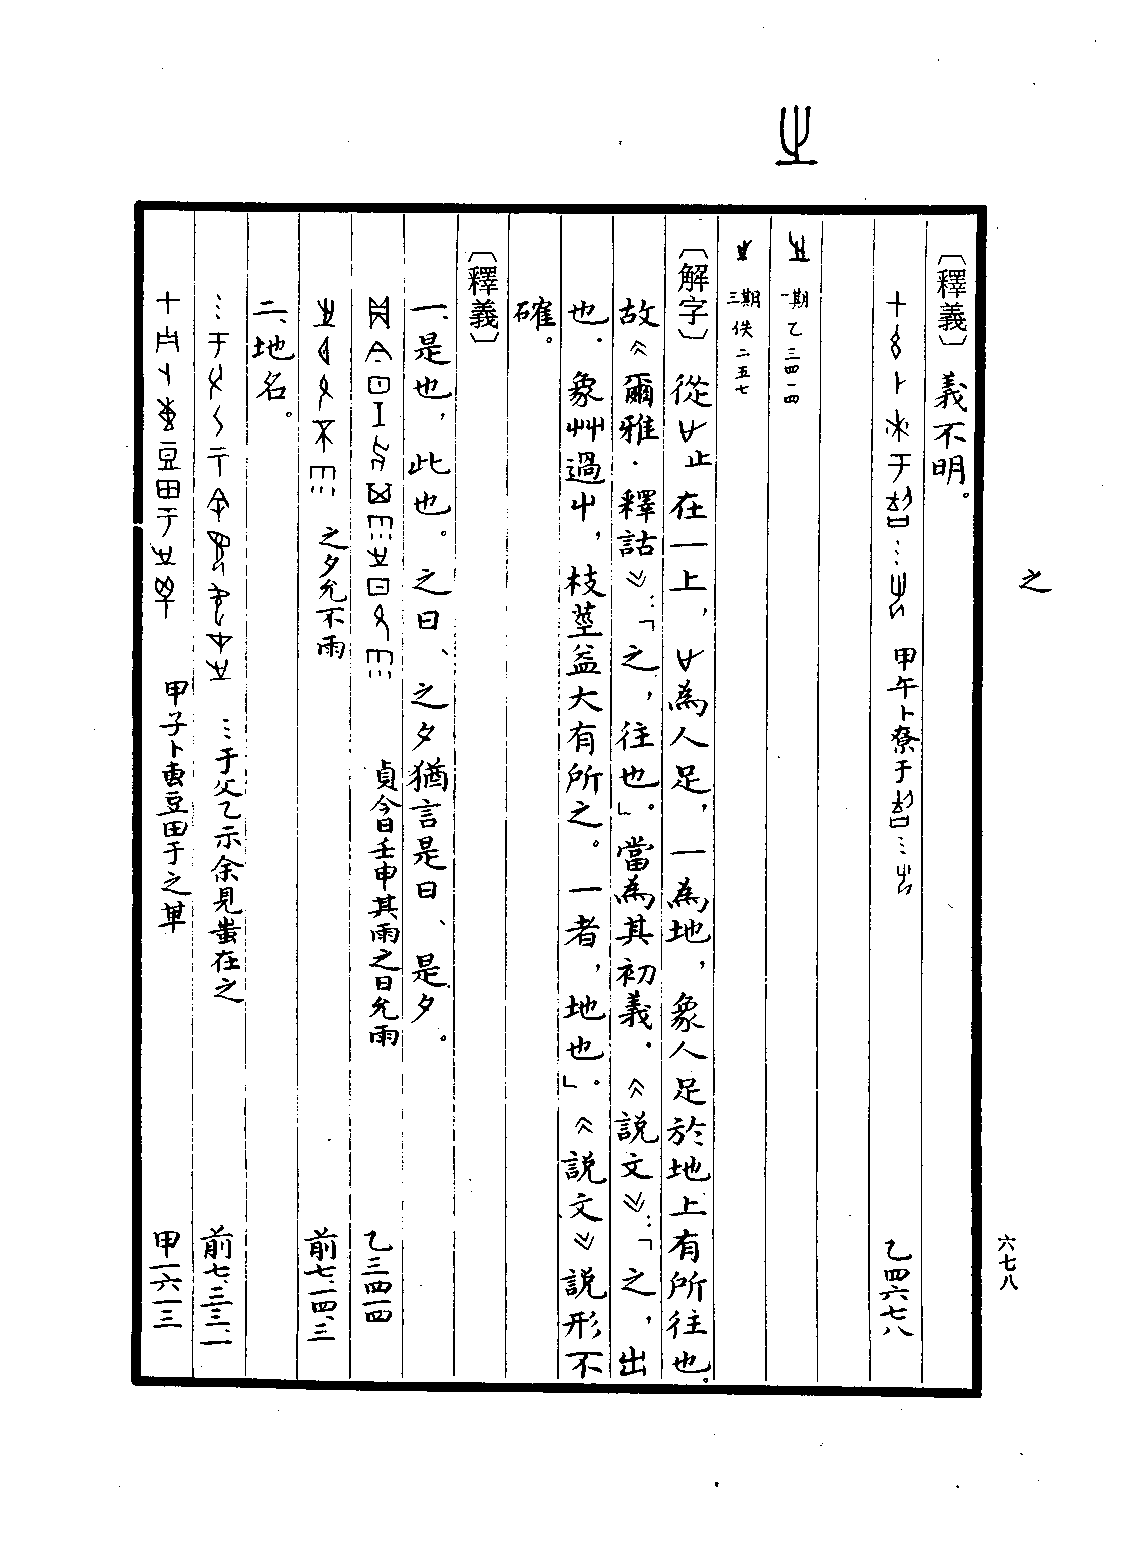 之
六七八
〔釋義〕義不明。
甲午卜尞于⋮
乙四六七八
一期 乙三四一四
三期 佚二五七
〔解字〕從止在一上，為人足，一為地，象人足於地上有所往也。
故《爾雅·釋詁》：「之，往也。」當為其初義。《說文》：「之，出
也。象艸過屮，枝莖益大有所之。一者，地也」。《說文》說形不
確。
〔釋義〕
一、是也，此也。之日、之夕猶言是日、是夕。
貞今日壬申其雨之日允雨 乙三四一四
之夕允不雨 前七·一四·三
二、地名。
⋮于父乙示余見蚩在之 前七·三三·一
甲子卜叀豆田于之 甲一六一三